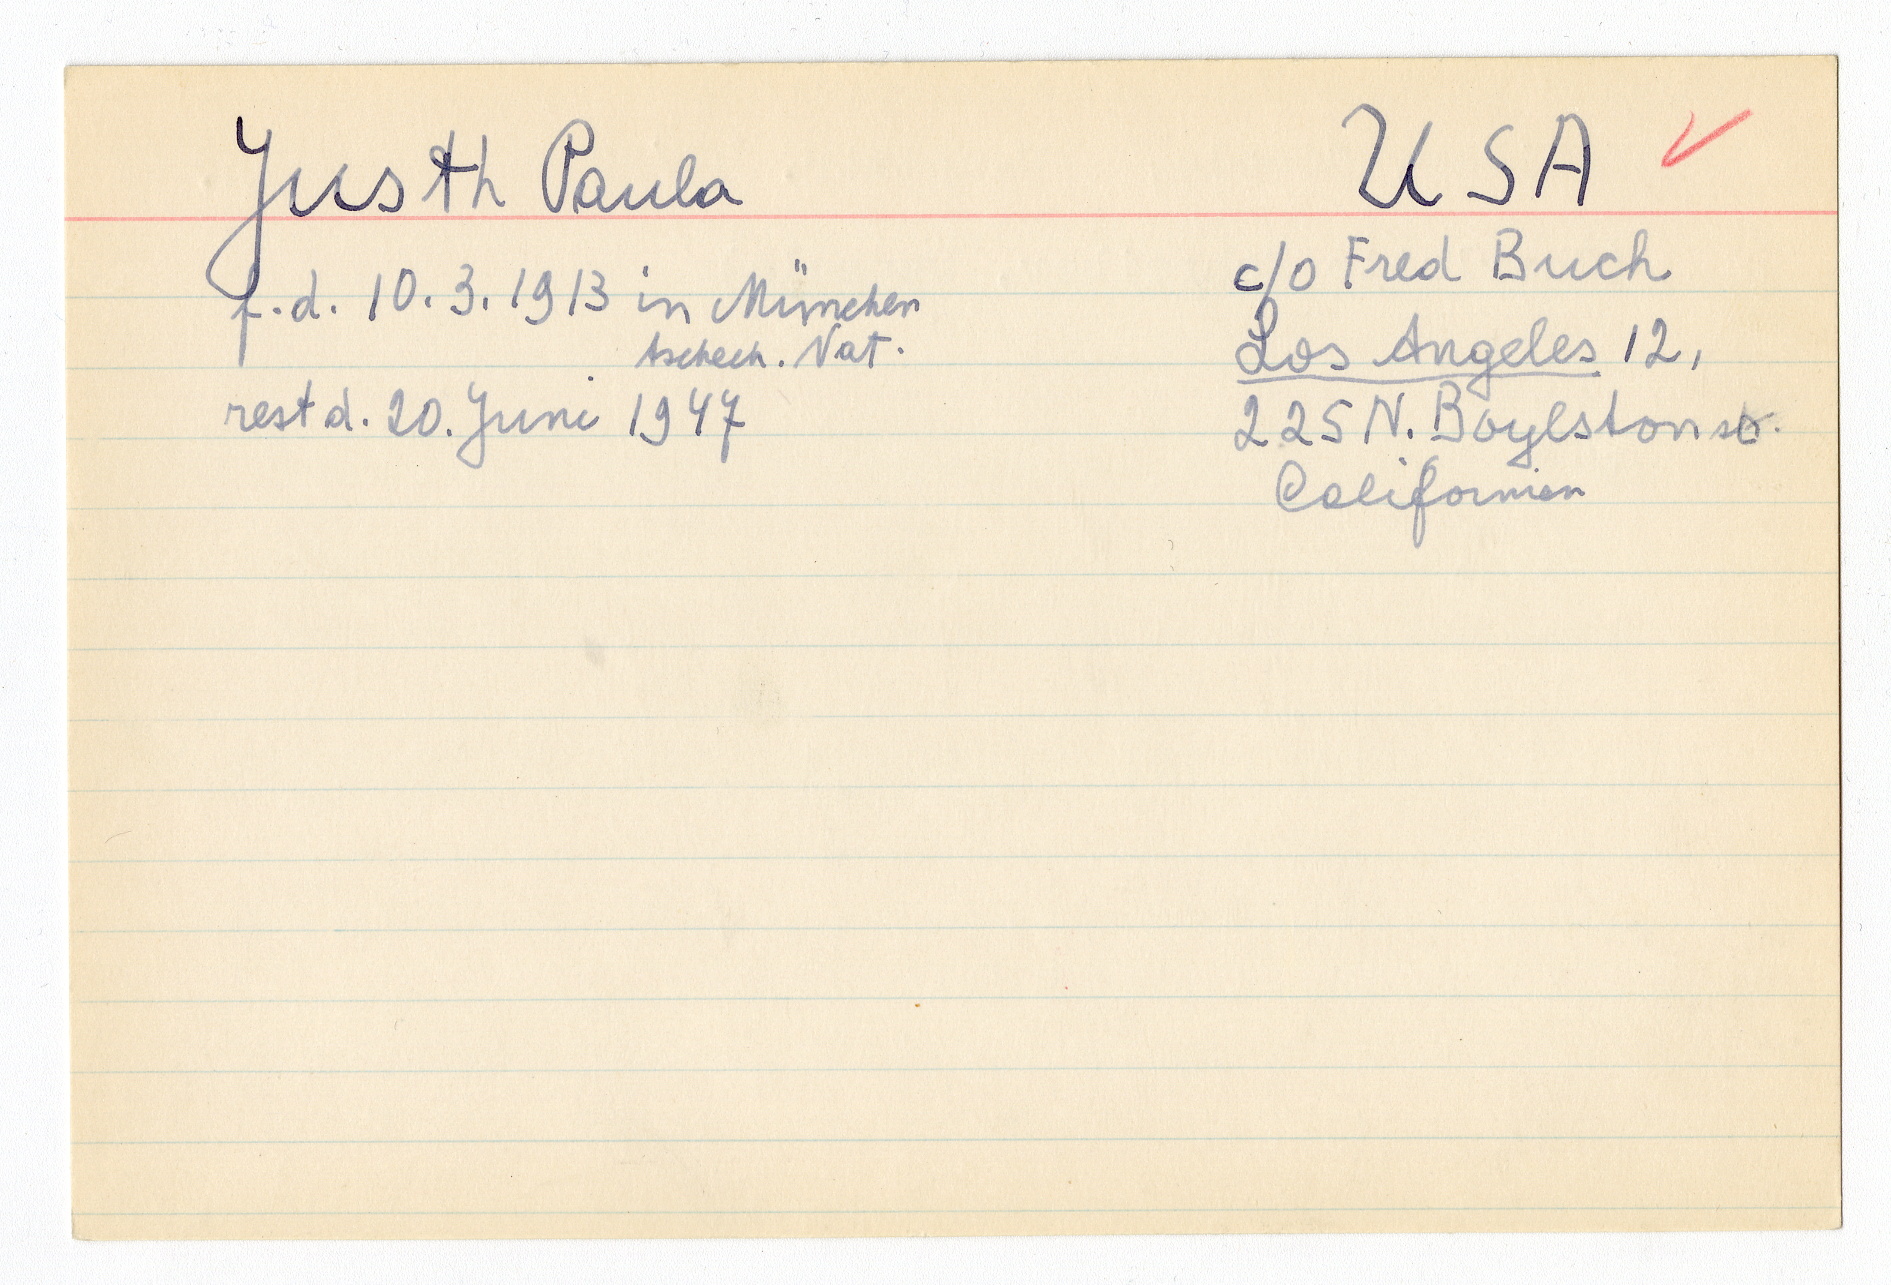 Justh Paula
f. d. 10. 3. 1913 in München
tschech. Nat.
rest d. 20. Juni 1947
USA
c/o Fred Buch
Los Angeles 12,
225 N. Boylston str.
Californien